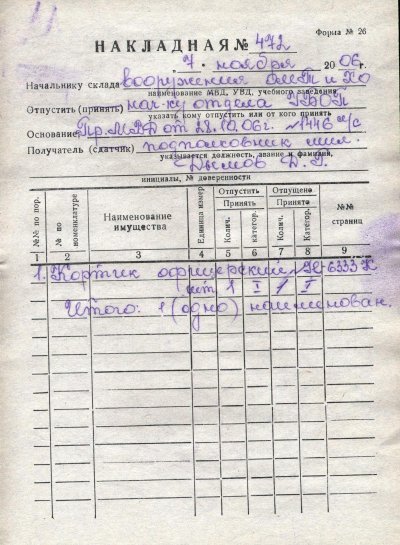 Форма № 26
НАКЛАДНАЯ № 472
7 ноября 2006 г.
Начальнику склада вооружения и
наименование МВД, УВД, учебного заведения
Отпустить (принять) нач-ку отдела
указать кому отпустить или от кого принять
Основание Пр. МВД от 28.10.06г. № 1446 л/с
Получатель (сдатчик) подполковник мил.
указывается должность, звание и фамилия,
Дымов Д.Г.
инициалы, № доверенности
№№ по пор. № по номенклатуре Наименование имущества Единица измер Отпустить Принять Колич. категор. Отпущено Принято Колич. Категор. №№ страниц
1 2 3 4 5 6 7 8 9
1. Кортик офицерский 6333 К
шт. 1 I 1 I
Итого: 1 (одно) наименован.